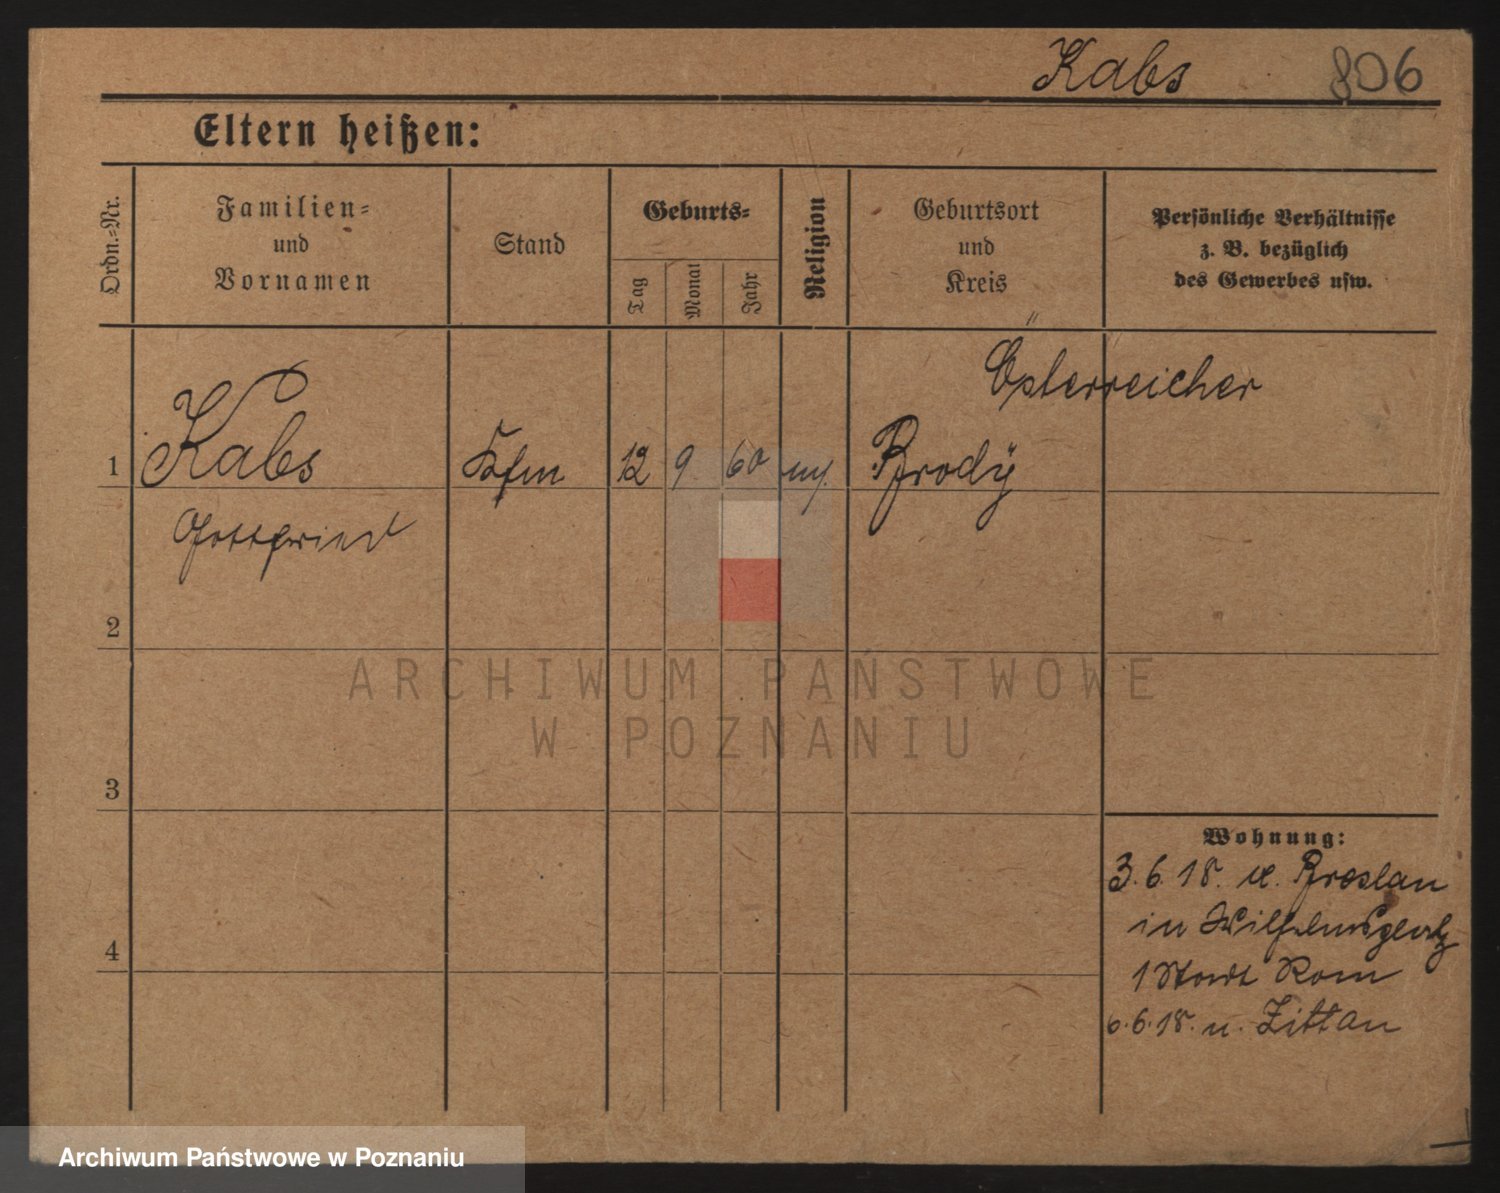 Kabs 806
Eltern heißen:
Ordn.=Nr.
Familien=
und
Vornamen
Stand
Geburts=
Tag
Monat
Jahr
Religion
Geburtsort
und
Kreis
Persönliche Verhältnisse
z. B. bezüglich
des Gewerbes usw.
Österreicher
1 Kabs Kfm 12 9 60 Brody
Gottfried
2
3
4
Wohnung:
3.6.18. v. Breslau
in Wilhelmsplatz
1 Stadt Rom
6.6.18. n. Zittau
ARCHIWUM PAŃSTWOWE
W POZNANIU
Archiwum Państwowe w Poznaniu